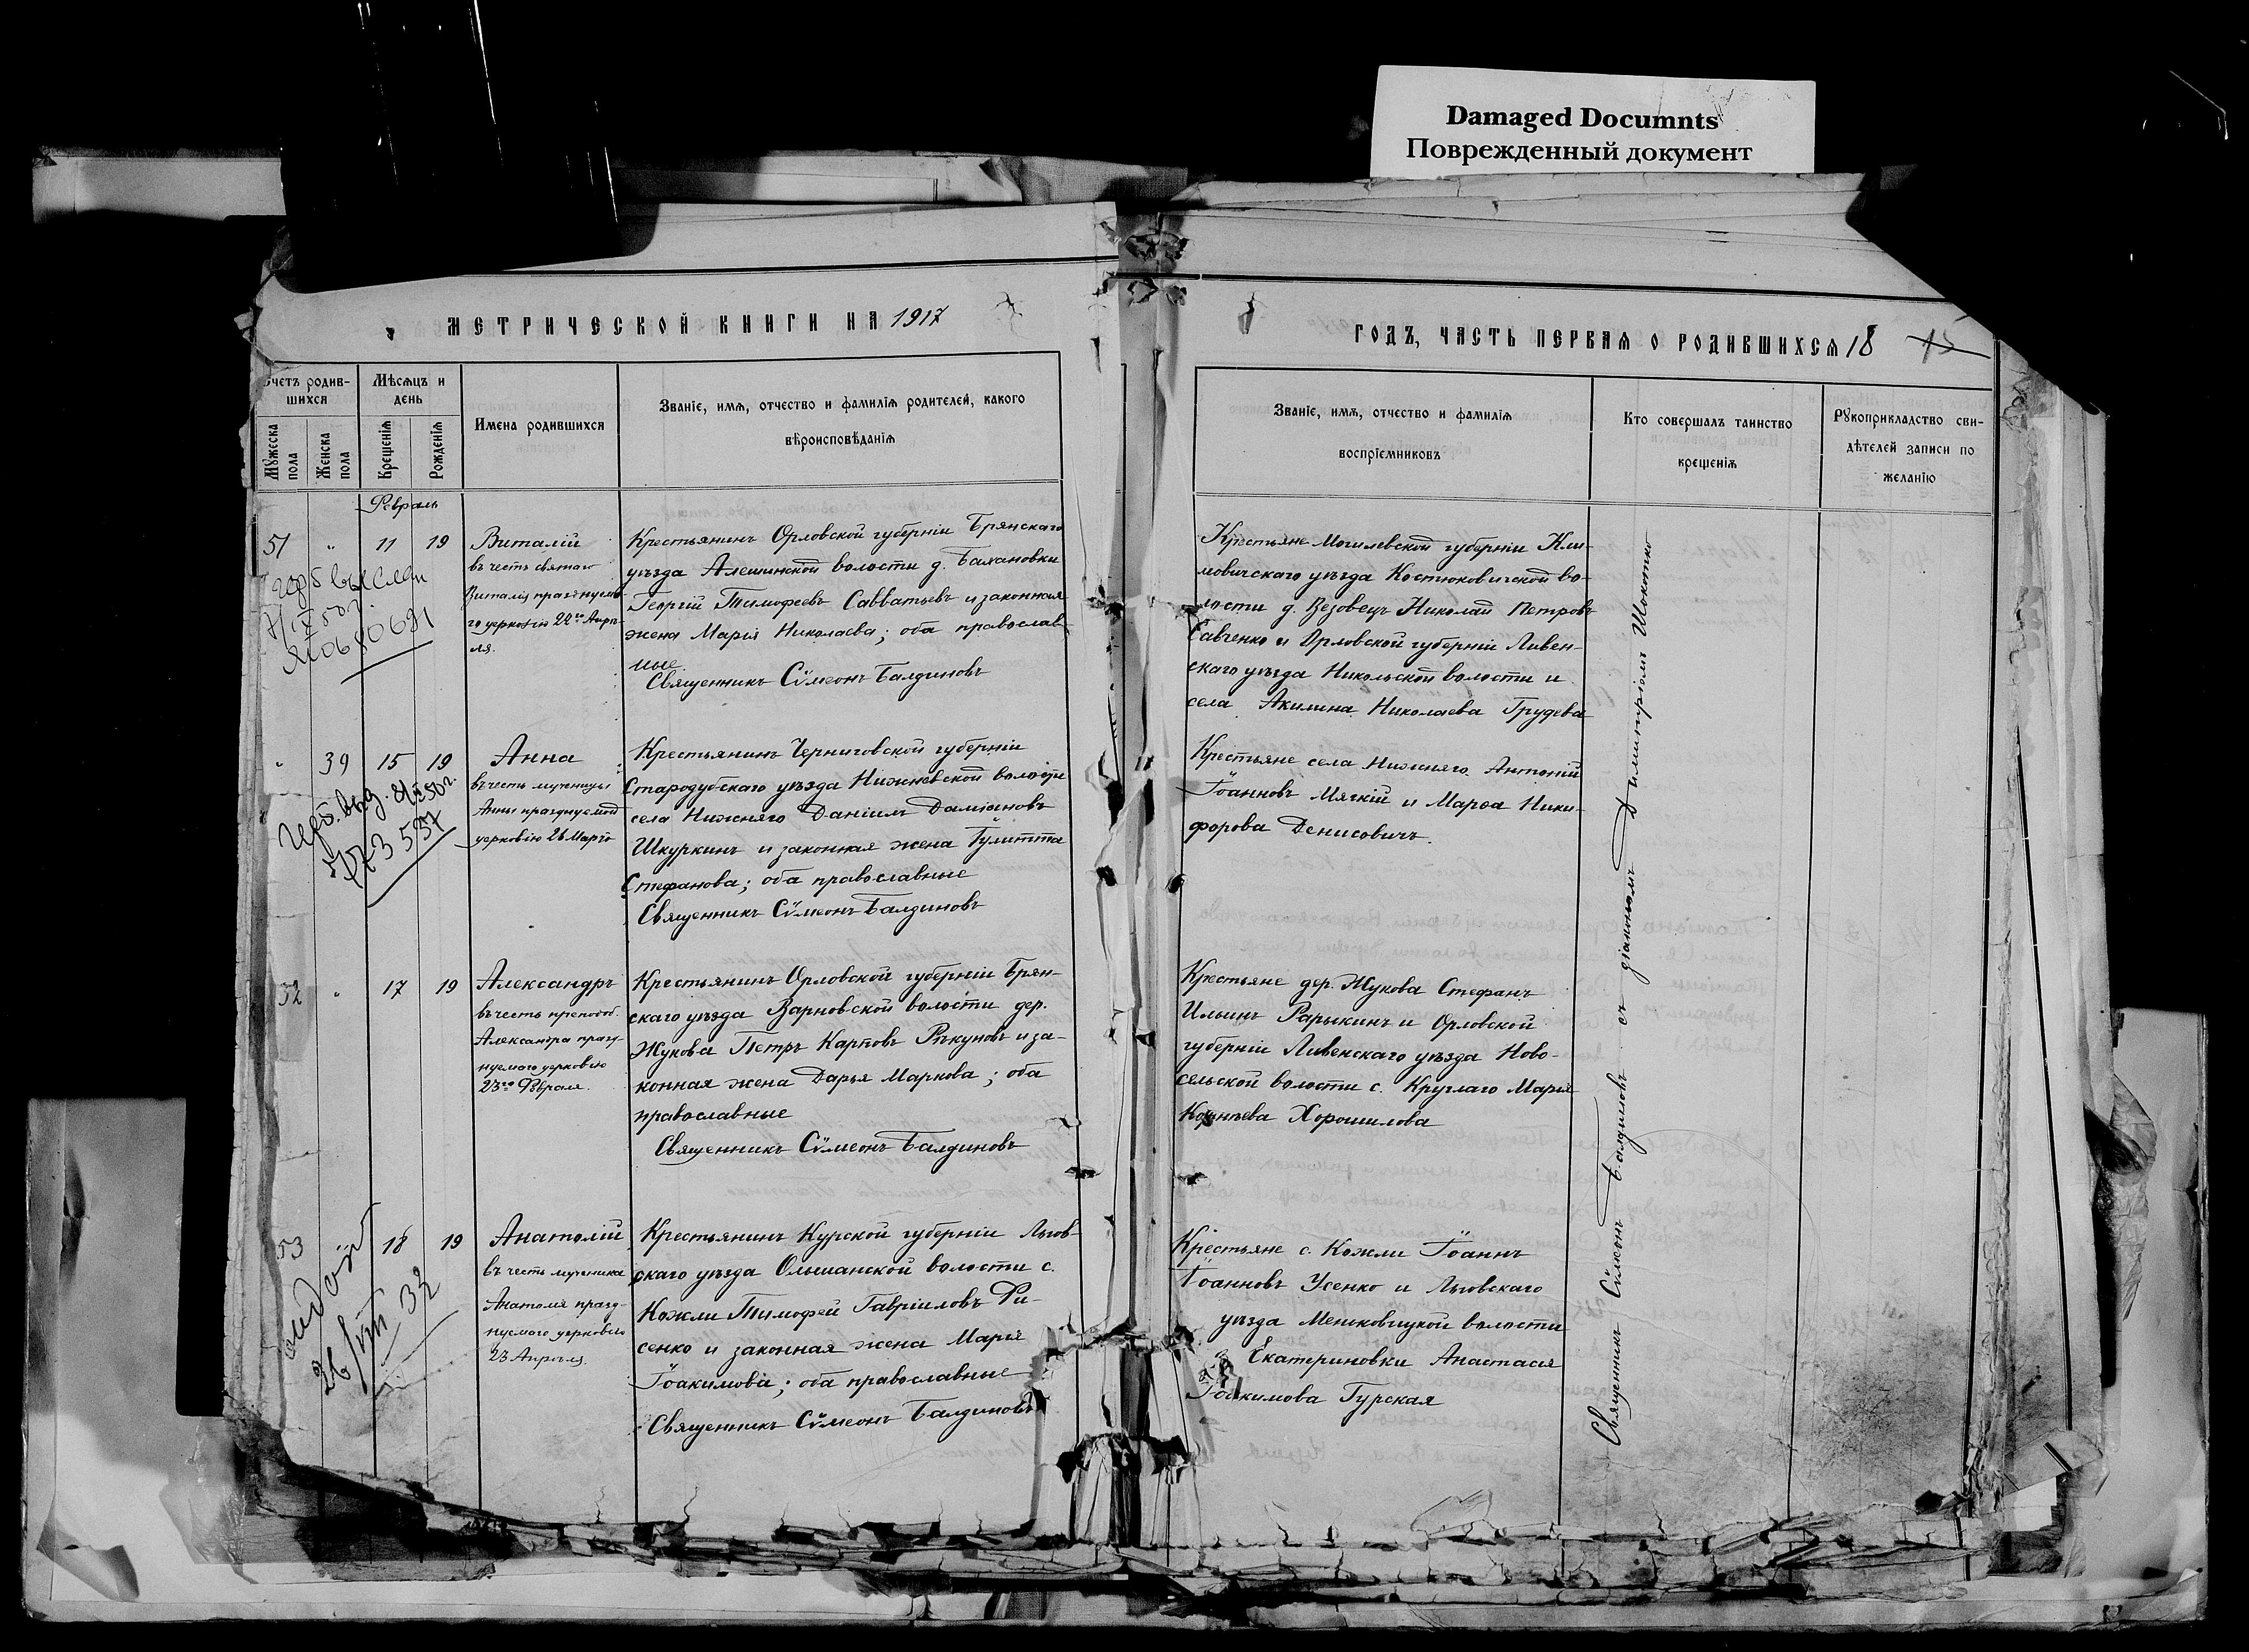 Damaged Documnts
Поврежденный документ
МЕТРИЧЕСКОЙ КНИГИ НА 1917
ГОДЪ, ЧАСТЬ ПЕРВАЯ О РОДИВШИХСЯ 18
15
Счетъ родив-
шихся
Мѣсяцъ и
день
Мужеска
пола
Женска
пола
Крещенія
Рожденія
Имена родившихся
Званіе, имя, отчество и фамилія родителей, какого
вѣроисповѣданія
Званіе, имя, отчество и фамилія
воспріемниковъ
Кто совершалъ таинство
крещенія
Рукоприкладство сви-
дѣтелей записи по
желанію
Февраль
51 " 11 19
Виталій
въ честь святаго
Виталія празднуема-
го церковію 22го Апрѣ-
ля.
Крестьянинъ Орловской губерніи Брянскаго
уѣзда Алешинской волости д. Балановки
Георгій Тимофеевъ Савватьевъ и законная
жена Марія Николаева; оба православ-
ные.
Священникъ Сѵмеонъ Балдиновъ
Крестьяне Могилевской губерніи Кли-
мовичскаго уѣзда Костюковичской во-
лости д. Везовецъ Николай Петровъ
Савченко и Орловской губерніи Ливен-
скаго уѣзда Никольской волости и
села Акилина Николаева Грудева
" 39 15 19
Анна
въ честь мученицы
Анны празднуемой
церковію 26 Марта
Крестьянинъ Черниговской губерніи
Стародубскаго уѣзда Нижневской волости
села Нижняго Даніилъ Даміановъ
Шкуркинъ и законная жена Іулитта
Стефанова; оба православные
Священникъ Сѵмеонъ Балдиновъ
Крестьяне села Нижняго Антоній
Іоанновъ Мягкій и Марѳа Ники-
форова Денисовичъ.
473 537
52 " 17 19
Александръ
въ честь преподоб.
Александра празд-
нуемаго церковію
23го Февраля.
Крестьянинъ Орловской губерніи Брян-
скаго уѣзда Зарновской волости дер.
Жукова Петръ Карповъ Рѣкуновъ и за-
конная жена Дарья Маркова; оба
православные
Священникъ Сѵмеонъ Балдиновъ
Крестьяне дер. Жукова Стефанъ
Ильинъ Рарыкинъ и Орловской
губерніи Ливенскаго уѣзда Ново-
сельской волости с. Круглаго Марія
Корнѣева Хорошилова
53 18 19
Анатолій
въ честь мученика
Анатолія празд-
нуемаго церковію
23 Апрѣля.
Крестьянинъ Курской губерніи Льгов-
скаго уѣзда Ольшанской волости с.
Кожли Тимофей Гавріиловъ Фи-
сенко и законная жена Марья
Іоакимова; оба православные
Священникъ Сѵмеонъ Балдиновъ
Крестьяне с. Кожли Іоаннъ
Іоанновъ Усенко и Льговскаго
уѣзда волости
Екатериновки Анастасія
Іоакимова Гурская
26/VIII 32
Священникъ Сѵмеонъ Балдиновъ съ діакономъ Димитріемъ Шокотко